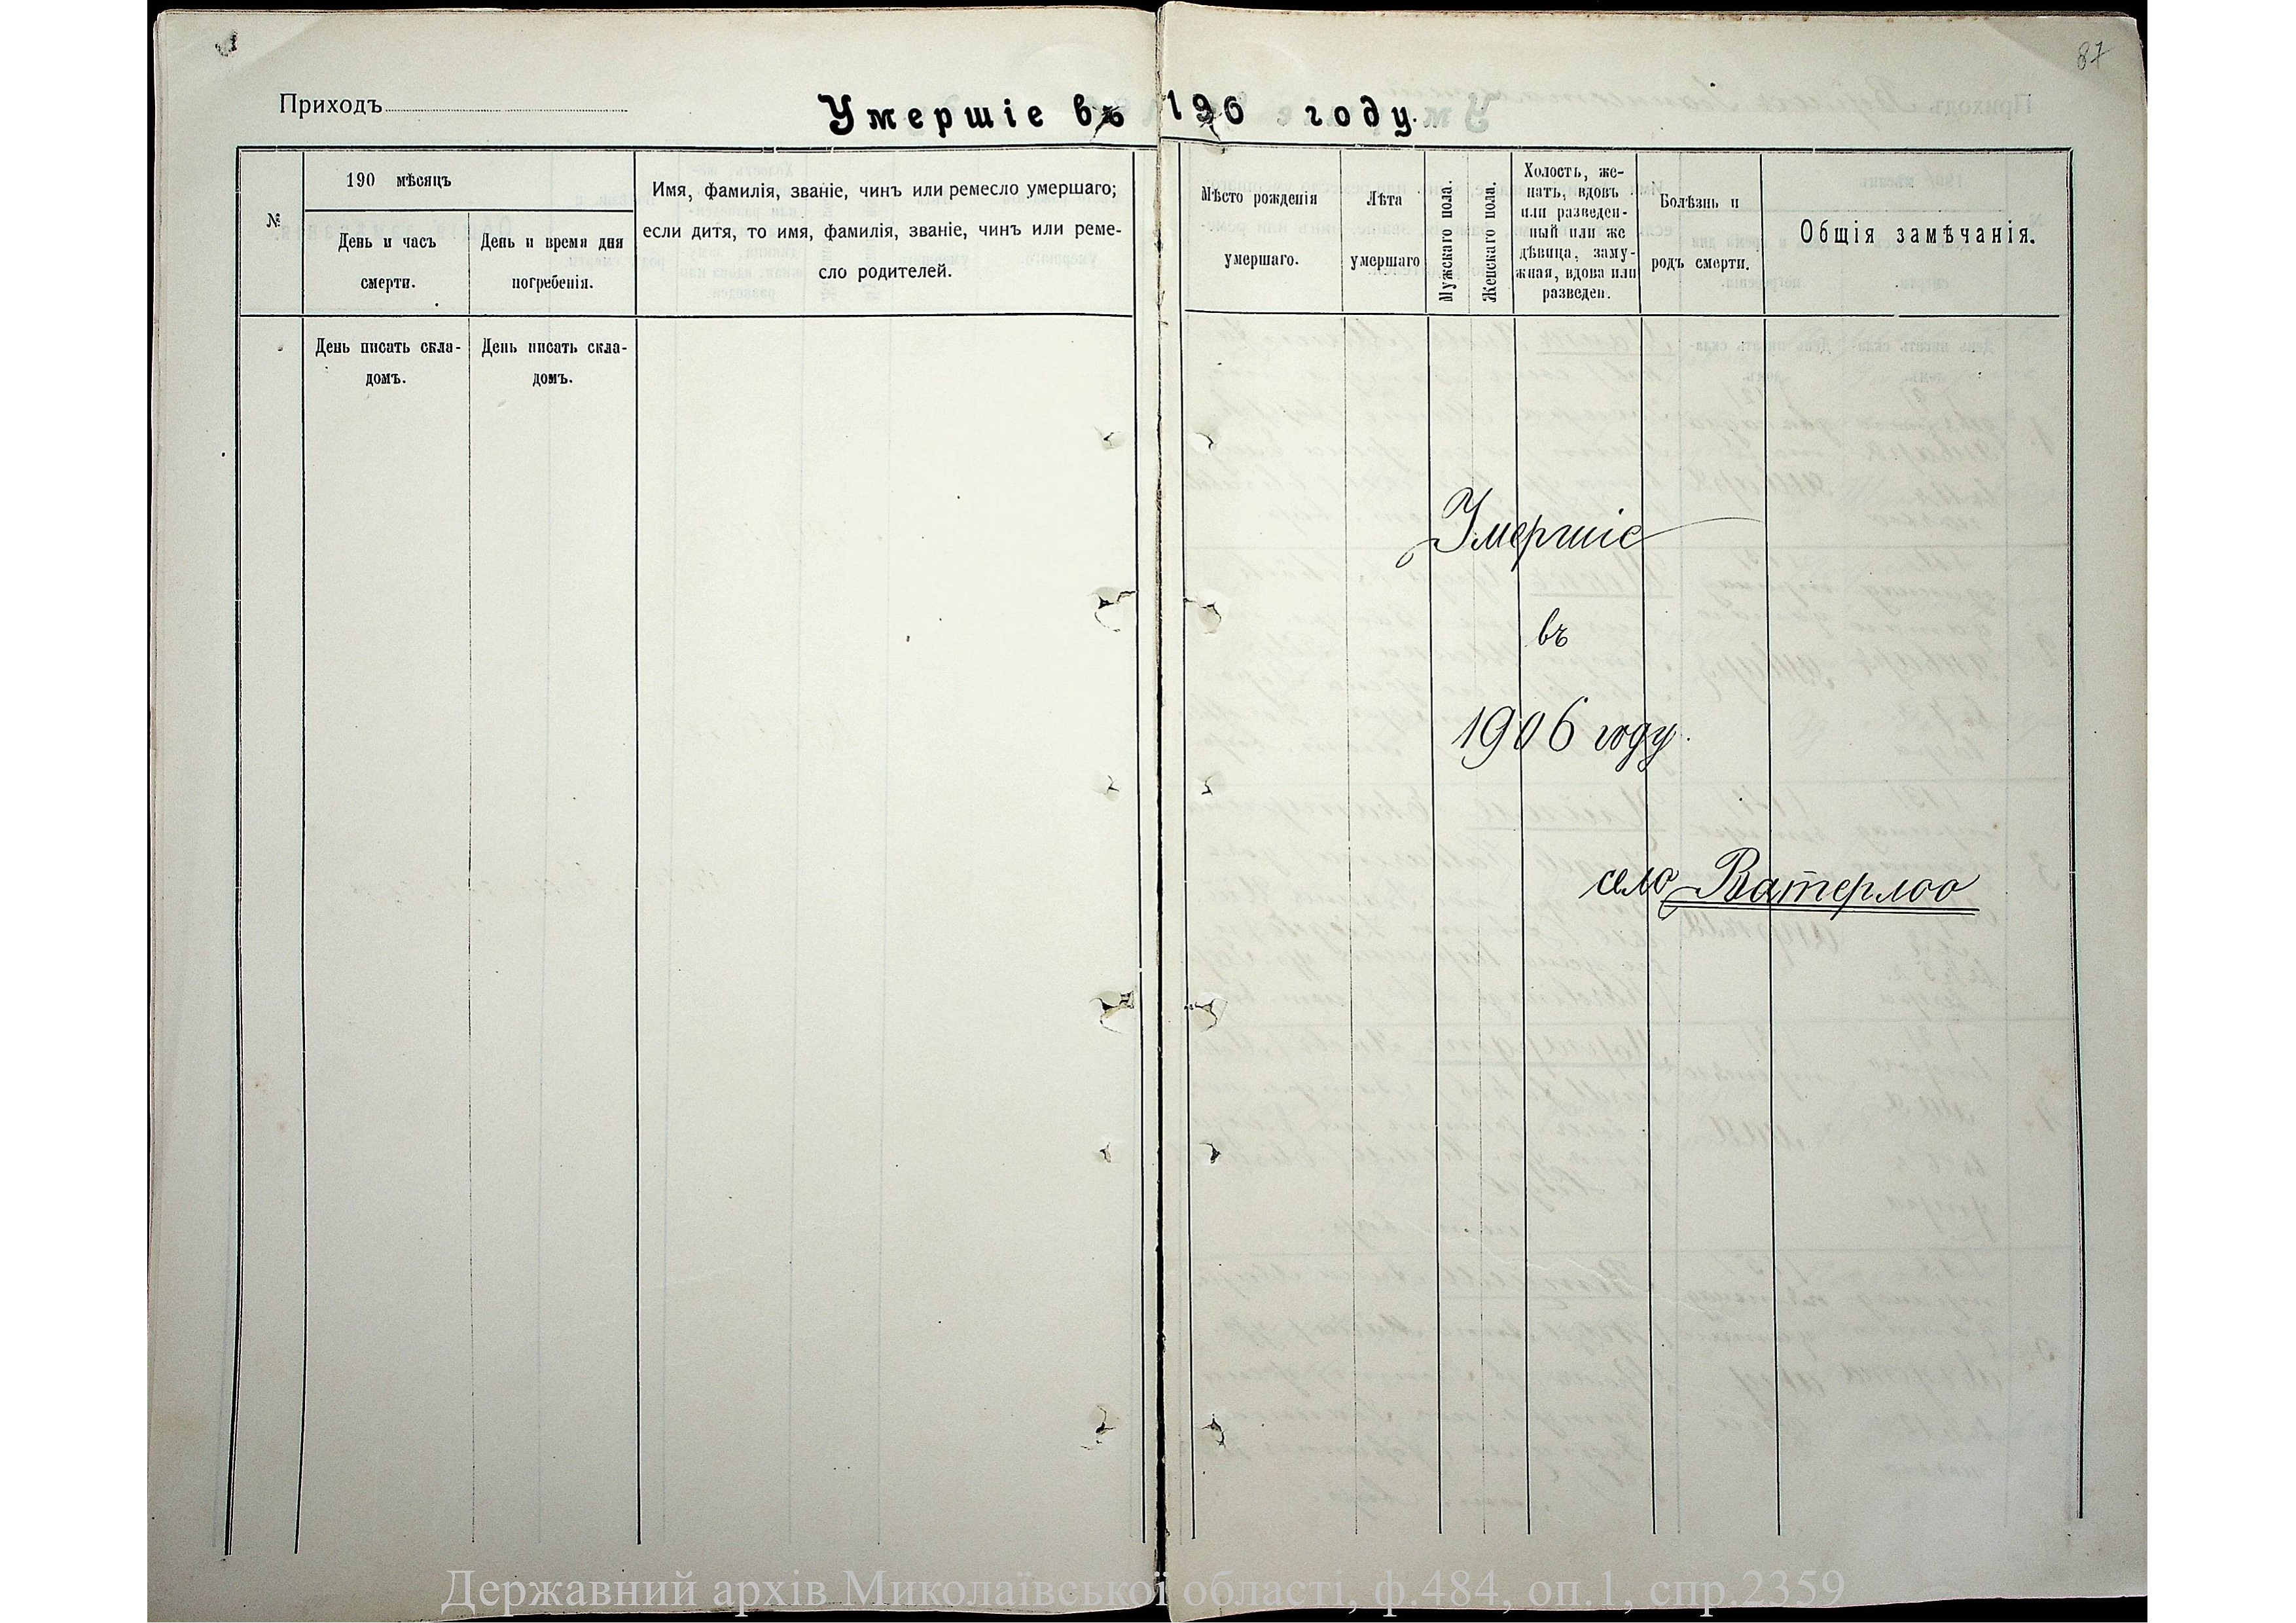 87
Приходъ
Умершіе въ 1906 году.
№
190 мѣсяцъ
День и часъ
смерти.
День и время дня
погребенія.
Имя, фамилія, званіе, чинъ или ремесло умершаго;
если дитя, то имя, фамилія, званіе, чинъ или реме-
сло родителей.
Мѣсто рожденія
умершаго.
Лѣта
умершаго
Мужскаго пола.
Женскаго пола.
Холостъ, же-
натъ, вдовъ
или разведен-
ный или же
дѣвица, заму-
жняя, вдова или
разведен.
Болѣзнь и
родъ смерти.
Общія замѣчанія.
День писать скла-
домъ.
День писать скла-
домъ.
Умершіе
въ
1906 году.
село Ватерлоо
Державний архів Миколаївської області, ф.484, оп.1, спр.2359